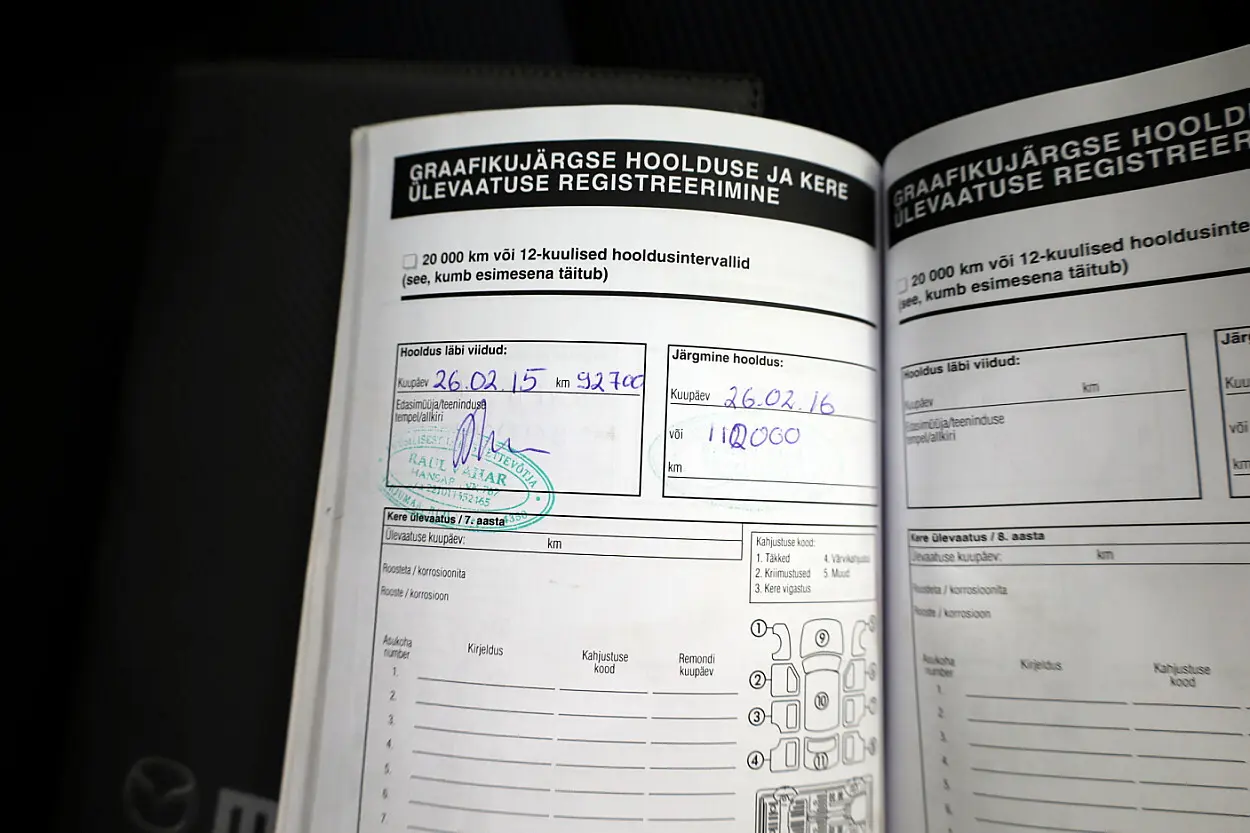 GRAAFIKUJÄRGSE HOOLDUSE JA KERE
ÜLEVAATUSE REGISTREERIMINE
20 000 km või 12-kuulised hooldusintervallid
(see, kumb esimesena täitub)
Hooldus läbi viidud:
Kuupäev 26.02.15 km 92700
Edasimüüja/teeninduse
tempel/allkiri
RAUL VAHAR
Järgmine hooldus:
Kuupäev 26.02.16
või 112000
km
Kere ülevaatus / 7. aasta
Ülevaatuse kuupäev: km
Roosteta / korrosioonita
Rooste / korrosioon
Kahjustuse kood:
1. Täkked 4. Värvikahjustus
2. Kriimustused 5. Muud
3. Kere vigastus
Asukoha
number
Kirjeldus
Kahjustuse
kood
Remondi
kuupäev
1.
2.
3.
4.
5.
6.
7.
1
2
3
4
9
10
11
GRAAFIKUJÄRGSE HOOLD
ÜLEVAATUSE REGISTREER
20 000 km või 12-kuulised hooldusinte
(see, kumb esimesena täitub)
Hooldus läbi viidud:
Kuupäev km
Edasimüüja/teeninduse
tempel/allkiri
Järg
Kuu
või
km
Kere ülevaatus / 8. aasta
Ülevaatuse kuupäev: km
Roosteta / korrosioonita
Rooste / korrosioon
Asukoha
number
Kirjeldus
Kahjustuse
kood
1.
2.
3.
4.
5.
6.